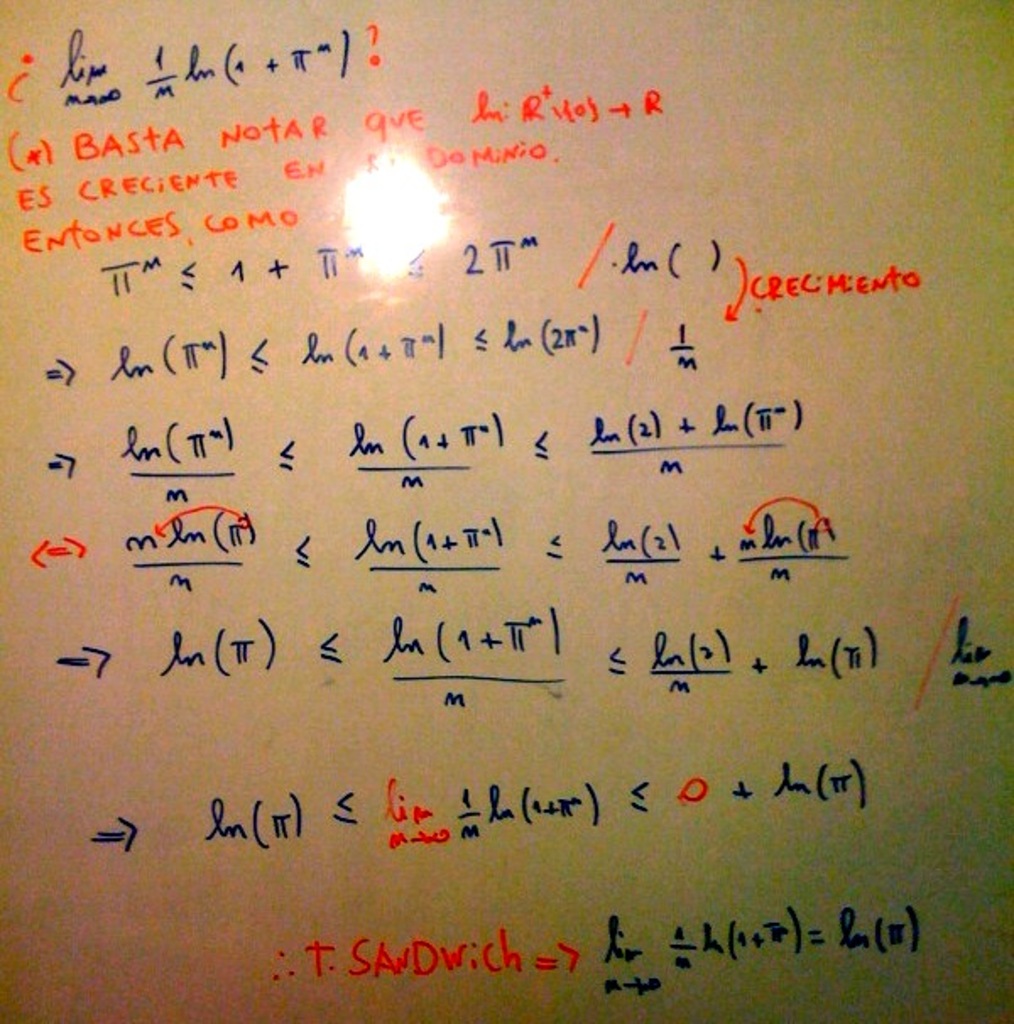 ¿ lim n→∞ 1/n ln(1 + π^n)?
(*) BASTA NOTAR QUE ln: R^+\{0} → R
ES CRECIENTE EN SU DOMINIO.
ENTONCES, COMO
π^n ≤ 1 + π^n ≤ 2π^n / ·ln( ) CRECIMIENTO
⇒ ln(π^n) ≤ ln(1+π^n) ≤ ln(2π^n) / 1/n
⇒ ln(π^n)/n ≤ ln(1+π^n)/n ≤ ln(2) + ln(π^n)/n
⇔ n ln(π)/n ≤ ln(1+π^n)/n ≤ ln(2)/n + n ln(π)/n
⇒ ln(π) ≤ ln(1+π^n)/n ≤ ln(2)/n + ln(π) / lim n→∞
⇒ ln(π) ≤ lim n→∞ 1/n ln(1+π^n) ≤ 0 + ln(π)
∴ T. SANDWich ⇒ lim n→∞ 1/n ln(1+π^n) = ln(π)